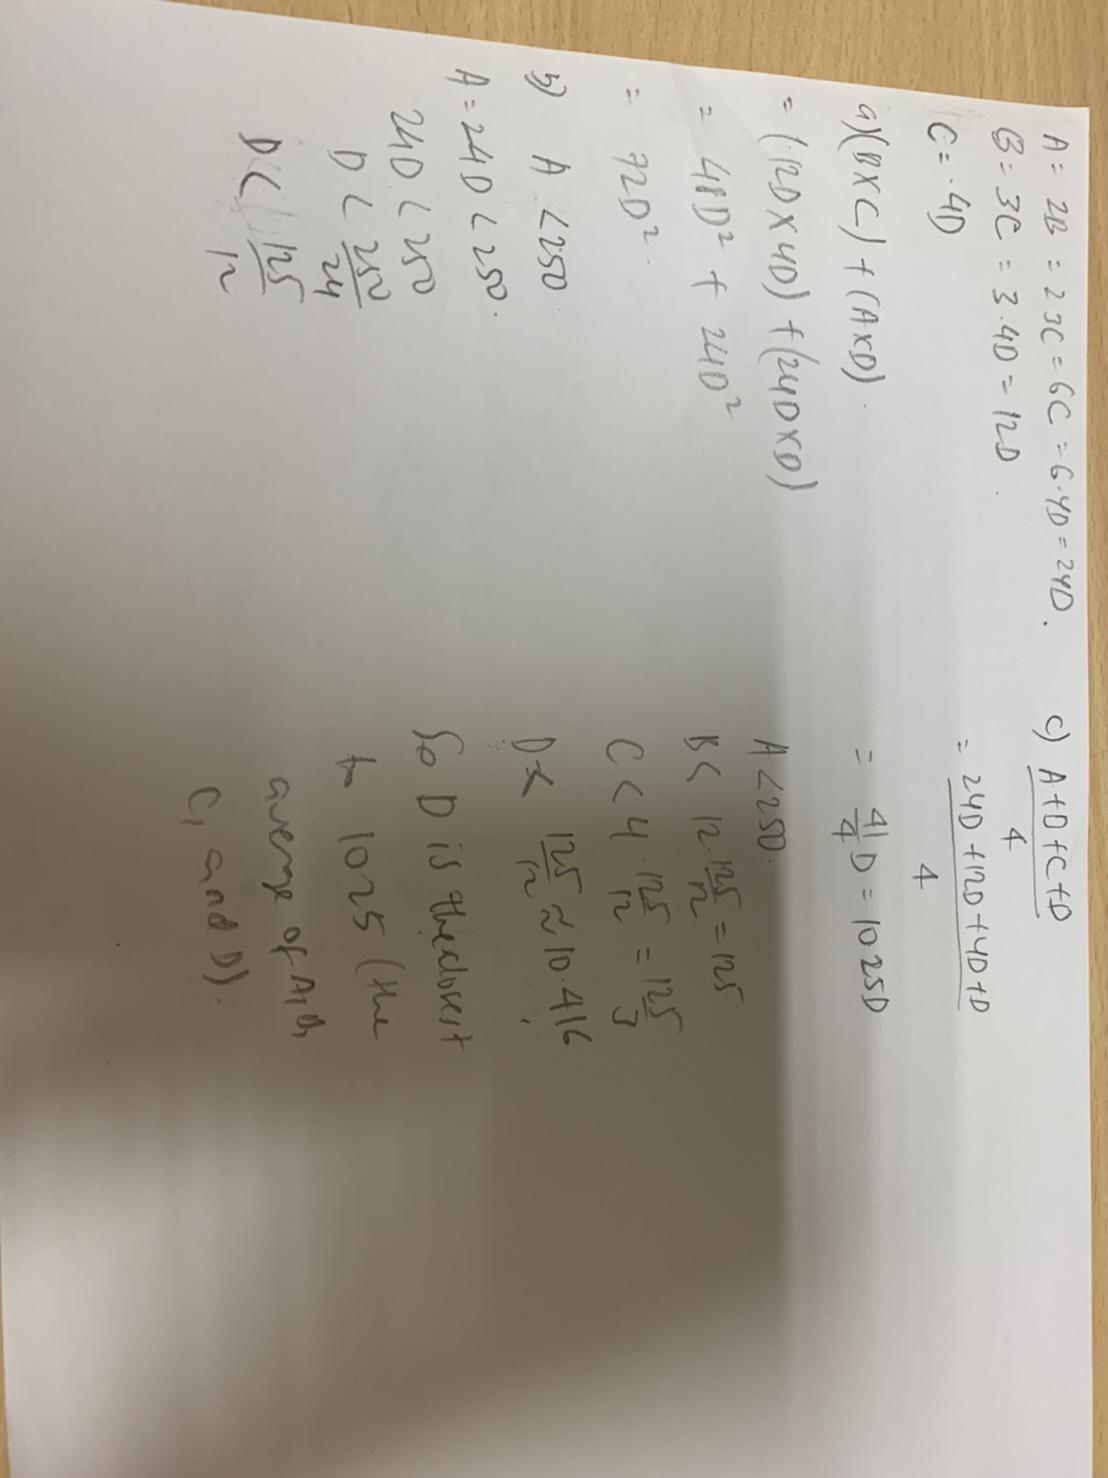 A = 2B = 2 3C = 6C = 6·4D = 24D.
B = 3C = 3·4D = 12D.
C = 4D
a) (B×C) + (A×D).
= (12D × 4D) + (24D × D)
= 48D² + 24D²
= 72D².
b) A < 250
A = 24D < 250.
24D < 250
D < 250/24
D < 125/12
c) A+D+C+D / 4
= 24D + 12D + 4D + D / 4
= 41/4 D = 10 25D
A < 250.
B < 12 125/12 = 125
C < 4 · 125/12 = 125/3
D < 125/12 ≈ 10.416
So D is the closest
to 10 25 (the
average of A, B,
C, and D).